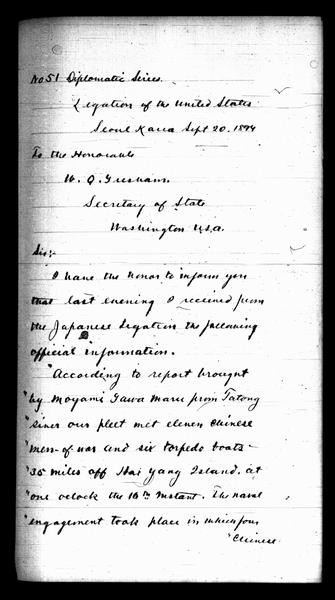 No 51 Diplomatic Series.
Legation of the United States
Seoul Korea Sept 20. 1894
To the Honorable
W. Q. Gresham.
Secretary of State
Washington U.S.A.
Sir:
I have the honor to inform you
that last evening I received from
the Japanese Legation the following
official information.
"According to report brought
"by Moyami Gawa Maru from Tatong
"River our fleet met eleven Chinese
"men-of-war and six torpedo boats
"35 miles off Hai Yang Island, at
"one oclock the 16th instant. The naval
"engagement took place in which four
"Chinese